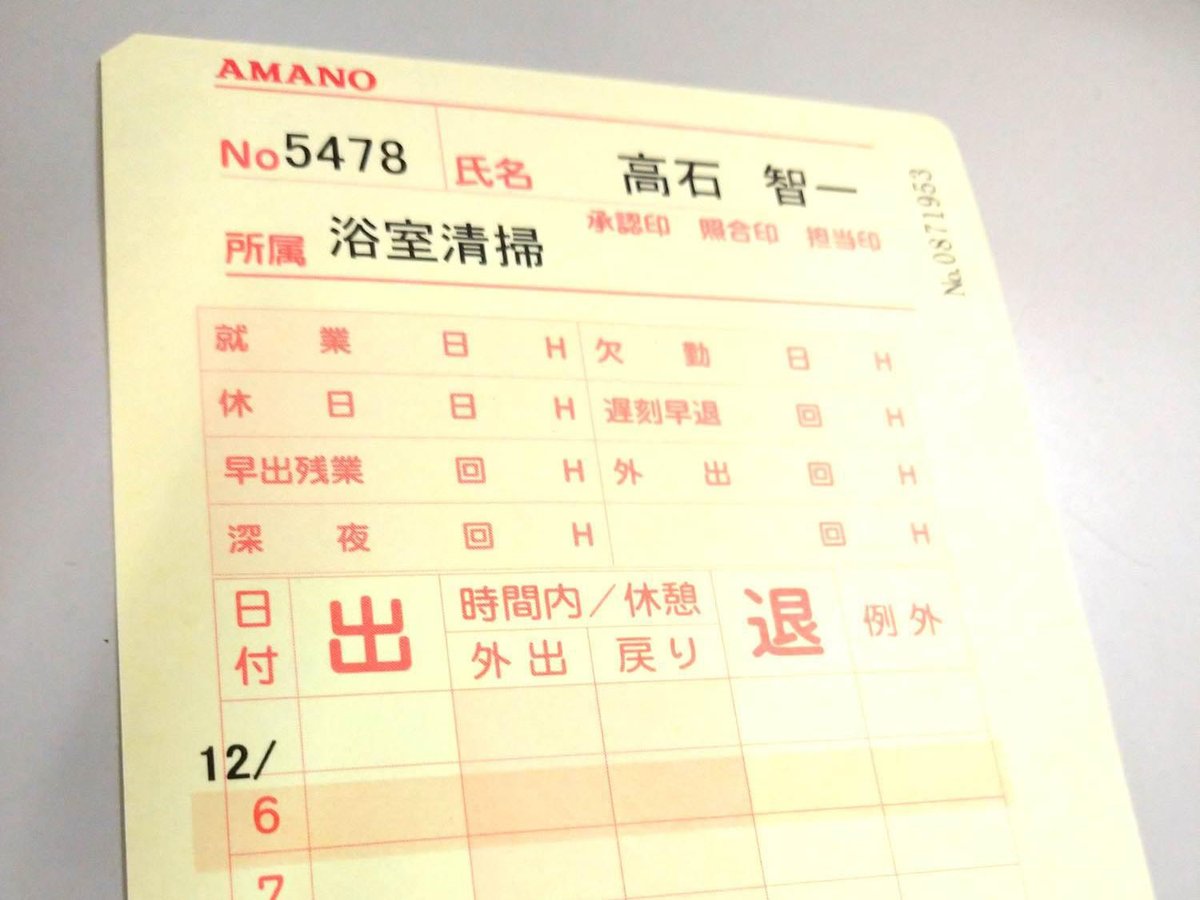 AMANO
No 5478 氏名 高石 智一
No. 0871953
承認印 照合印 担当印
所属 浴室清掃
就業 日 H 欠勤 日 H
休日 日 H 遅刻早退 回 H
早出残業 回 H 外出 回 H
深夜 回 H 回 H
日付 出 時間内/休憩 退 例外
外出 戻り
12/
6
7